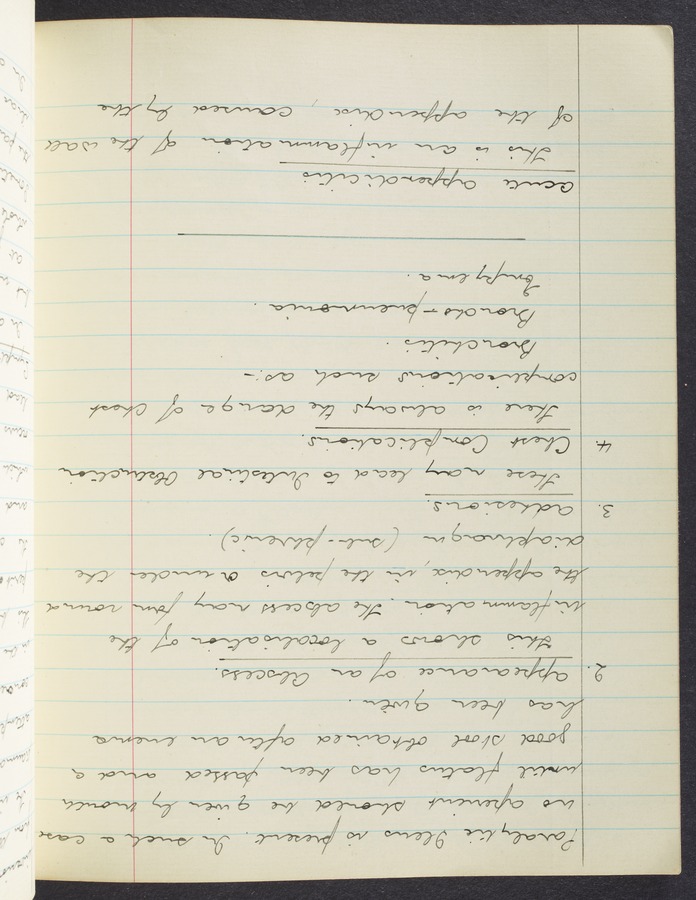 Paralytic Ileus is present. In such a case
no aperient should be given by mouth
until flatus has been passed and a
good stool obtained after an enema
has been given.
2. Appearance of an Abscess.
This shows a localisation of the
inflammation. The abscess may form round
the appendix, in the pelvis or under the
diaphragm (sub-phrenic).
3. Adhesions.
These may lead to Intestinal Obstruction
4. Chest Complications.
There is always the danger of Chest
complications such as:-
Bronchitis.
Broncho-pneumonia.
Empyema.
Acute Appendicitis
This is an inflammation of the wall
of the appendix, caused by the